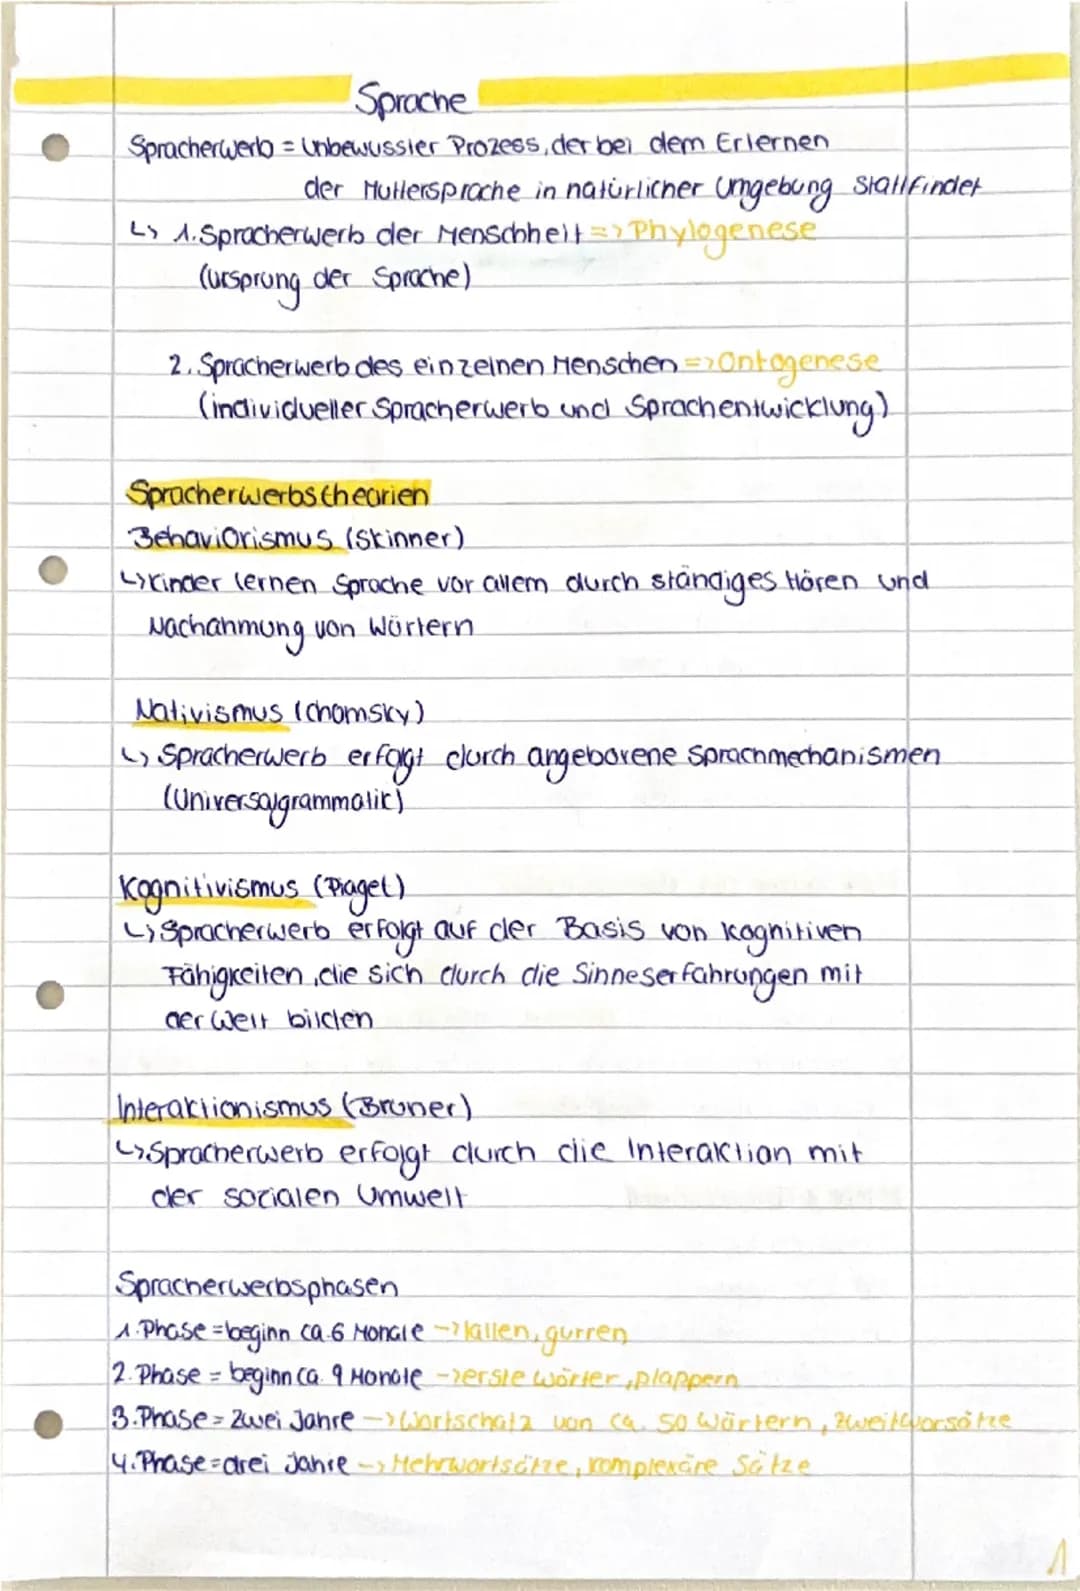 Sprache
Spracherwerb = Unbewusster Prozess, der bei dem Erlernen
der Muttersprache in natürlicher Umgebung stattfindet
↳ 1. Spracherwerb der Menschheit => Phylogenese
(Ursprung der Sprache)
2. Spracherwerb des einzelnen Menschen => Ontogenese
(individueller Spracherwerb und Sprachentwicklung)
Spracherwerbstheorien
Behaviorismus (Skinner)
↳ Kinder lernen Sprache vor allem durch ständiges Hören und
Nachahmung von Wörtern
Nativismus (Chomsky)
↳ Spracherwerb erfolgt durch angeborene Sprachmechanismen
(Universalgrammatik)
Kognitivismus (Piaget)
↳ Spracherwerb erfolgt auf der Basis von kognitiven
Fähigkeiten, die sich durch die Sinneserfahrungen mit
der Welt bilden
Interaktionismus (Bruner)
↳ Spracherwerb erfolgt durch die Interaktion mit
der sozialen Umwelt
Spracherwerbsphasen
1. Phase = beginn ca. 6 Monate -> lallen, gurren
2. Phase = beginn ca. 9 Monate -> erste Wörter, plappern
3. Phase = Zwei Jahre -> Wortschatz von ca. 50 Wörtern, Zweitworsätze
4. Phase = drei Jahre -> Mehrwortsätze, komplexäre Sätze
1